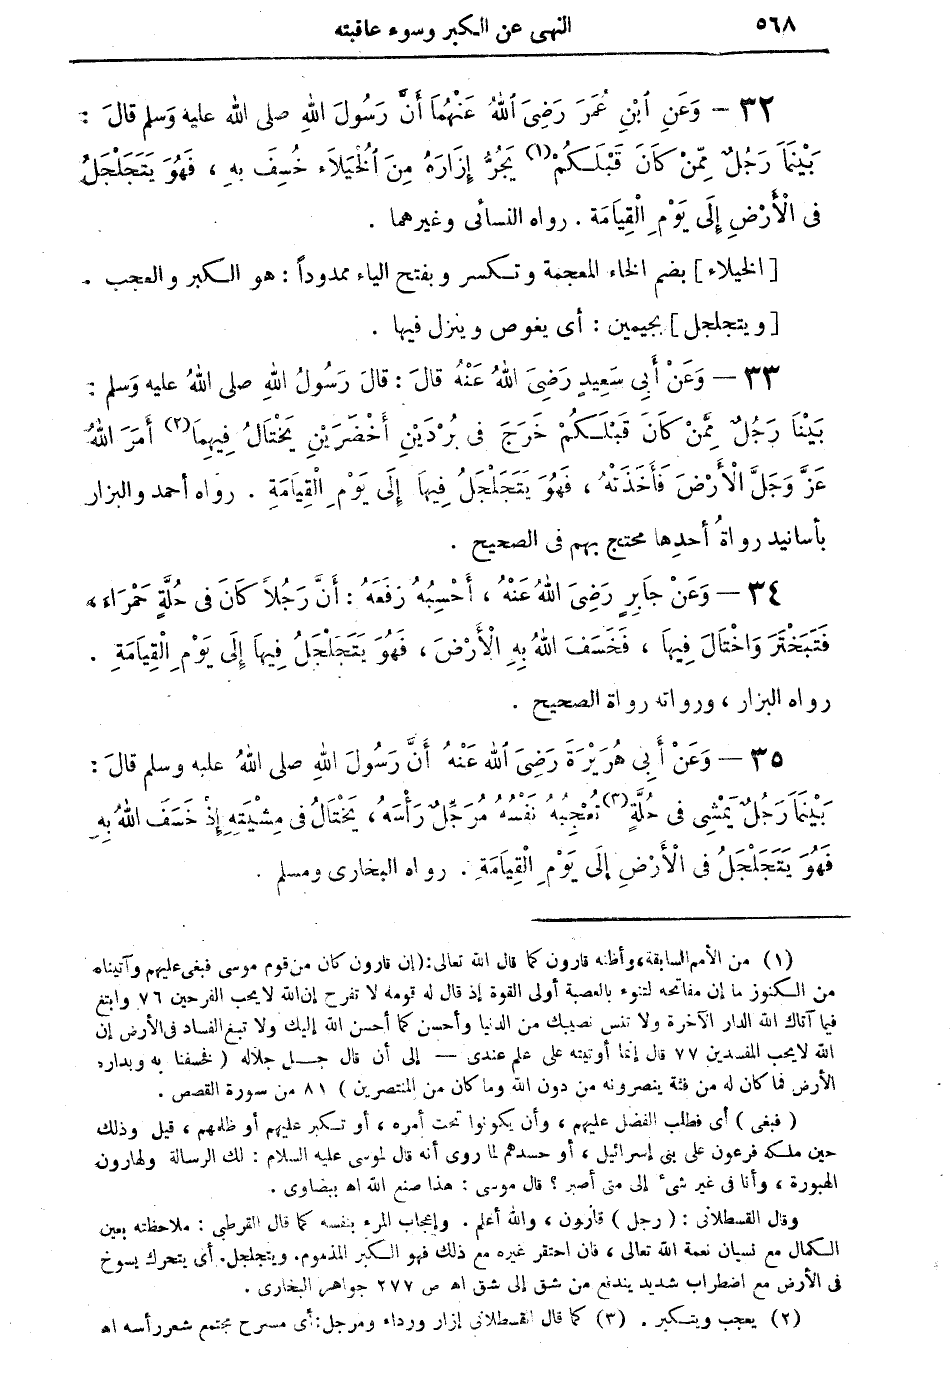 ٥٦٨
النهى عن الكبر وسوء عاقبته
٣٢ — وَعَنِ ٱبْنِ عُمَرَ رَضِىَ ٱللهُ عَنْهُمَا أَنَّ رَسُولَ اللهِ صلى الله عليه وَسلم قالَ :
بَيْنَمَا رَجُلٌ مِمَّنْ كَانَ قَبْلَكُمْ(١) يَجُرُّ إِزَارَهُ مِنَ الْخُيَلاَءِ خُسِفَ بِهِ ، فَهُوَ يَتَجَلْجَلُ
فِى الْأَرْضِ إِلَى يَوْمِ الْقِيَامَةِ . رواه النسائى وغيرهما .
[الخيلاء] بضم الخاء المعجمة وتكسر وبفتح الياء ممدوداً : هو الكبر والعجب .
[ويتجلجل] بجيمين : أى يغوص وينزل فيها .
٣٣ — وَعَنْ أَبِى سَعِيدٍ رَضِىَ اللهُ عَنْهُ قالَ : قالَ رَسُولُ اللهِ صلى اللهُ عليه وَسلم :
بَيْنَا رَجُلٌ مِمَّنْ كَانَ قَبْلَكُمْ خَرَجَ فى بُرْدَيْنِ أَخْضَرَيْنِ يَخْتَالُ فِيهِمَا(٢) أَمَرَ اللهُ
عَزَّ وَجَلَّ الْأَرْضَ فَأَخَذَتْهُ ، فَهُوَ يَتَجَلْجَلُ فِيهَا إِلَى يَوْمِ الْقِيَامَةِ . رواه أحمد والبزار
بأسانيد رواةُ أحدِها محتج بهم فى الصحيح .
٣٤ — وَعَنْ جَابِرٍ رَضِىَ اللهُ عَنْهُ ، أَحْسِبُهُ رَفَعَهُ : أَنَّ رَجُلاً كَانَ فى حُلَّةٍ حَمْرَاءَ ،
فَتَبَخْتَرَ وَاخْتَالَ فِيهَا ، فَخَسَفَ اللهُ بِهِ الْأَرْضَ ، فَهُوَ يَتَجَلْجَلُ فِيهَا إِلَى يَوْمِ الْقِيَامَةِ .
رواه البزار ، ورواته رواة الصحيح .
٣٥ — وَعَنْ أَبِى هُرَيْرَةَ رَضِىَ ٱللهُ عَنْهُ أَنَّ رَسُولَ اللهِ صلى اللهُ عليه وسلم قالَ :
بَيْنَمَا رَجُلٌ يَمْشِى فى حُلَّةٍ(٣) تُعْجِبُهُ نَفْسُهُ مُرَجِّلٌ رَأْسَهُ ، يَخْتَالُ فى مِشْيَتِهِ إِذْ خَسَفَ اللهُ بِهِ
فَهُوَ يَتَجَلْجَلُ فى الْأَرْضِ إِلَى يَوْمِ الْقِيَامَةِ . رواه البخارى ومسلم .
(١) من الأمم السابقة، وأظنه قارون كما قال الله تعالى: (إن قارون كان من قوم موسى فبغى عليهم وآتيناه
من الكنوز ما إن مفاتحه لتنوء بالعصبة أولى القوة إذ قال له قومه لا تفرح إن الله لا يحب الفرحين ٧٦ وابتغ
فيما آتاك الله الدار الآخرة ولا تنس نصيبك من الدنيا وأحسن كما أحسن الله إليك ولا تبغ الفساد فى الأرض إن
الله لا يحب المفسدين ٧٧ قال إنما أوتيته على علم عندى — إلى أن قال جل جلاله ( فخسفنا به وبداره
الأرض فما كان له من فئة ينصرونه من دون الله وما كان من المنتصرين ) ٨١ من سورة القصص .
( فبغى ) أى فطلب الفضل عليهم ، وأن يكونوا تحت أمره ، أو تكبر عليهم أو ظلمهم ، قيل وذلك
حين ملكه فرعون على بنى إسرائيل ، أو حسدهم لما روى أنه قال لموسى عليه السلام : لك الرسالة ولهارون
الحبورة ، وأنا فى غير شىء إلى متى أصبر ؟ قال موسى : هذا صنع الله اه بيضاوى .
وقال القسطلانى : ( رجل ) قارون ، والله أعلم . وإعجاب المرء بنفسه كما قال القرطبى : ملاحظته بعين
الكمال مع نسيان نعمة الله تعالى ، فان احتقر غيره مع ذلك فهو الكبر المذموم. ويتجلجل. أى يتحرك يسوخ
فى الأرض مع اضطراب شديد يندفع من شق إلى شق اه ص ٢٧٧ جواهر البخارى .
(٢) يعجب ويتكبر . (٣) كما قال القسطلانى إزار ورداء ومرجل: أى مسرح مجتمع شعر رأسه اه